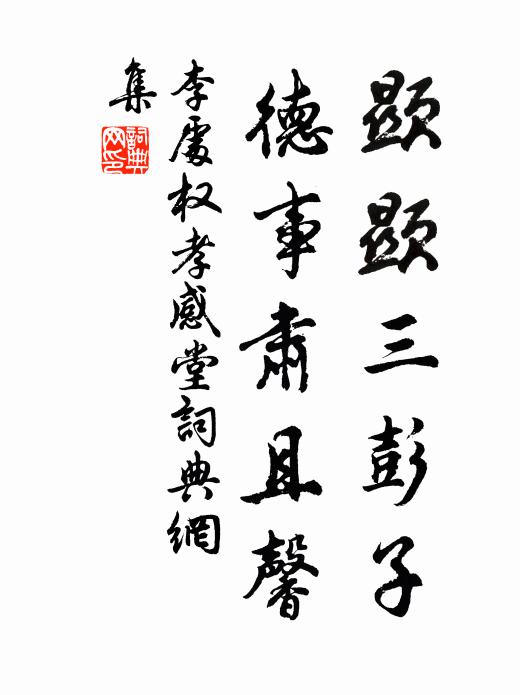 顯顯三彭子
德事肅且馨
李處权孝感堂詞典網
集
詞典
网印